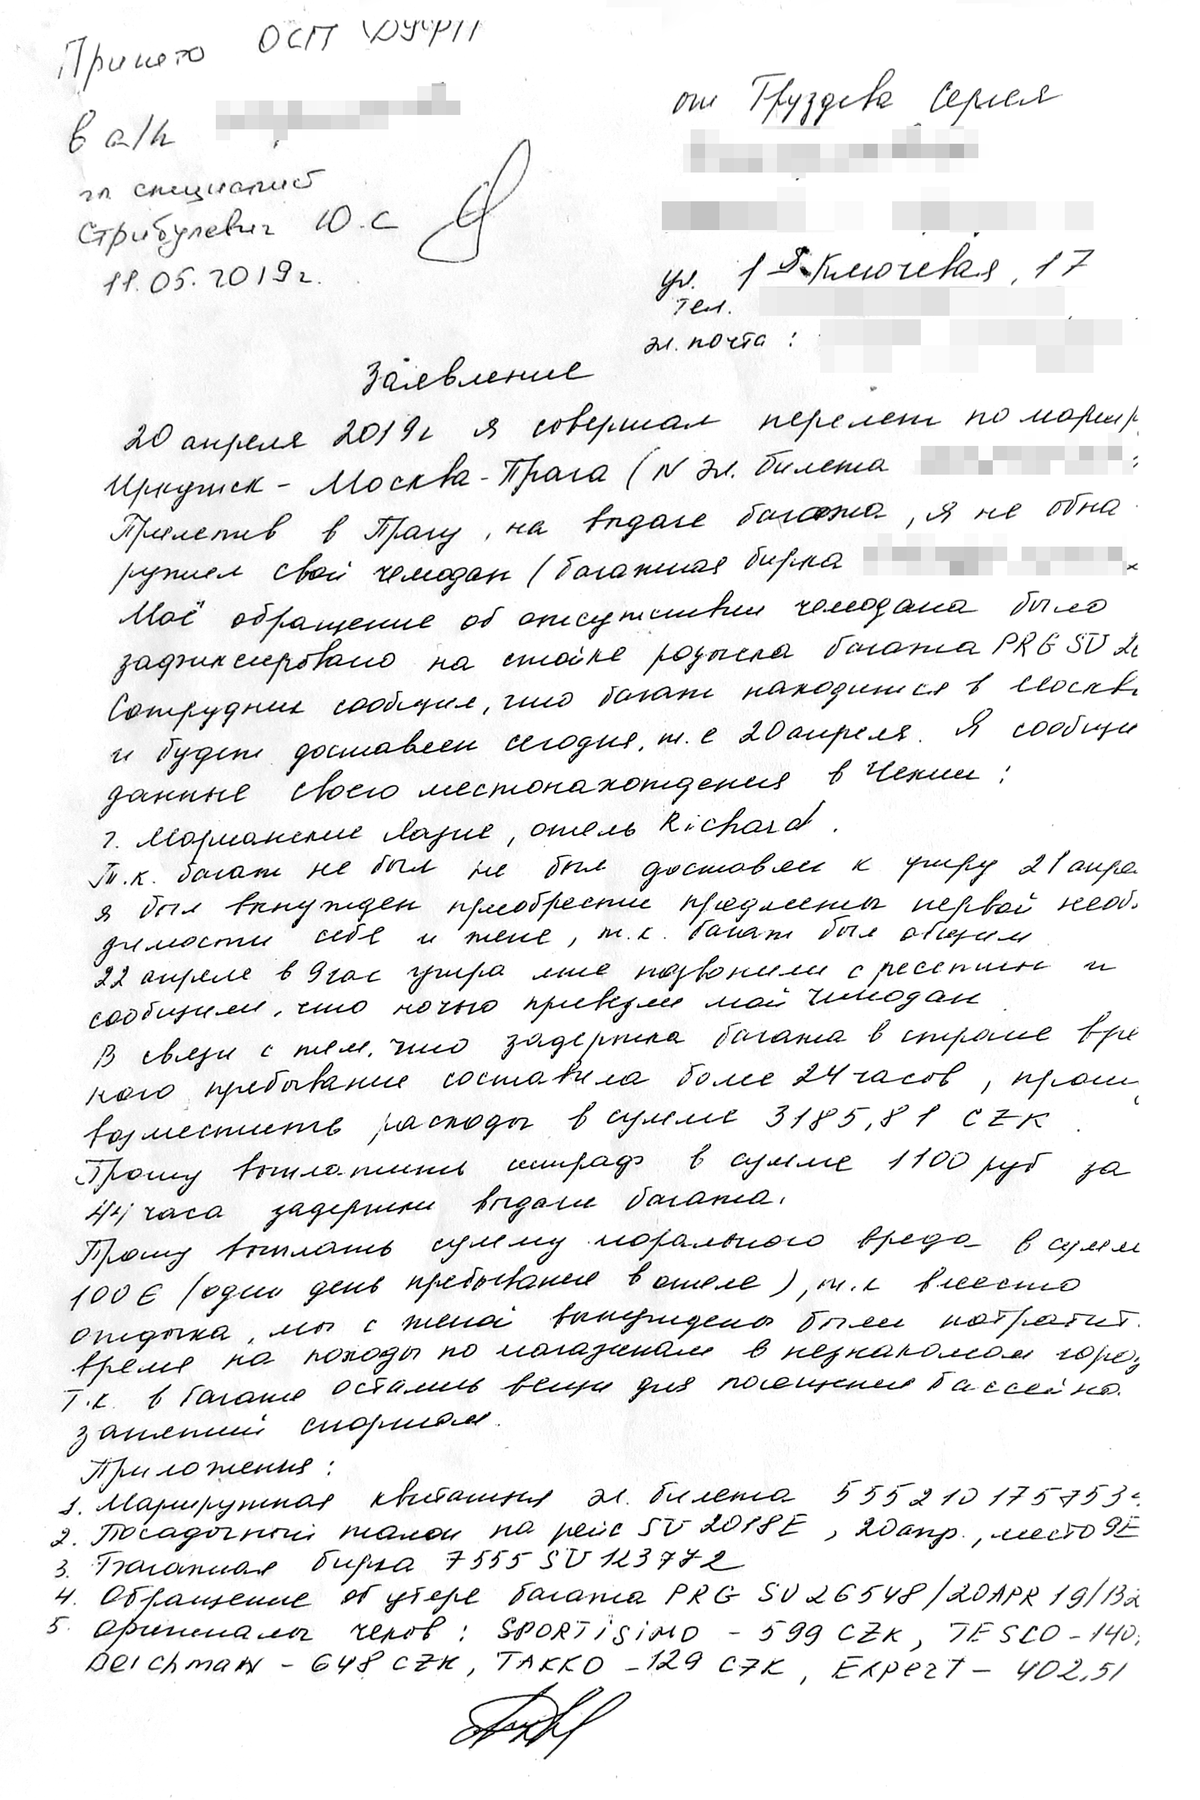 Принято ОСП
в а/п
гл специалист
Стрибулевич Ю.С
11.05.2019г.
от Груздева Сергея
ул. 1я Ключевая, 17
тел.
эл. почта :
Заявление
20 апреля 2019г я совершал перелет по маршр
Иркутск - Москва - Прага (N эл. билета
Прилетив в Прагу, на выдаче багажа, я не обна
ружил свой чемодан (багажная бирка
Моё обращение об отсутствии чемодана было
зафиксировано на стойке розыска багажа PRG SU 26
Сотрудник сообщил, что багаж находится в Москв
и будет доставлен сегодня, т.е 20 апреля. Я сообщи
данные своего местонахождения в Чехии :
г. Марианские Лазне, отель Richard.
Т.к. багаж не был не был доставлен к утру 21 апре
я был вынужден приобрести предметы первой необ
димости себе и жене, т.к. багаж был общим
22 апреля в 9 час утра мне позвонили с ресепшн и
сообщили, что ночью привезли мой чемодан
В связи с тем, что задержка багажа в стране вре
ного пребывание составила более 24 часов, прошу
возместить расходы в сумме 3185,81 CZK
Прошу выплатить штраф в сумме 1100 руб за
44 часа задержки выдачи багажа.
Прошу выплать сумму морального вреда в сумм
100€ (один день пребывания в отеле), т.к вместо
отдыха, мы с женой вынуждены были потратит
время на походы по магазинам в незнакомом город
Т.к. в багаже остались вещи для посещения бассейна
занятий спортом.
Приложения :
1. Маршрутная квитанция эл. билета 555210175753
2. Посадочный талон на рейс SU 2018E, 20 апр., место 9E
3. Багажная бирка 7555 SU 123772
4. Обращение об утере багажа PRG SU 26548/20APR 19/
5. Оригиналы чеков : SPORTISIMO - 599 CZK, TESCO - 140,
Deichmann - 648 CZK, TAKKO - 129 CZK, Expert - 402,51